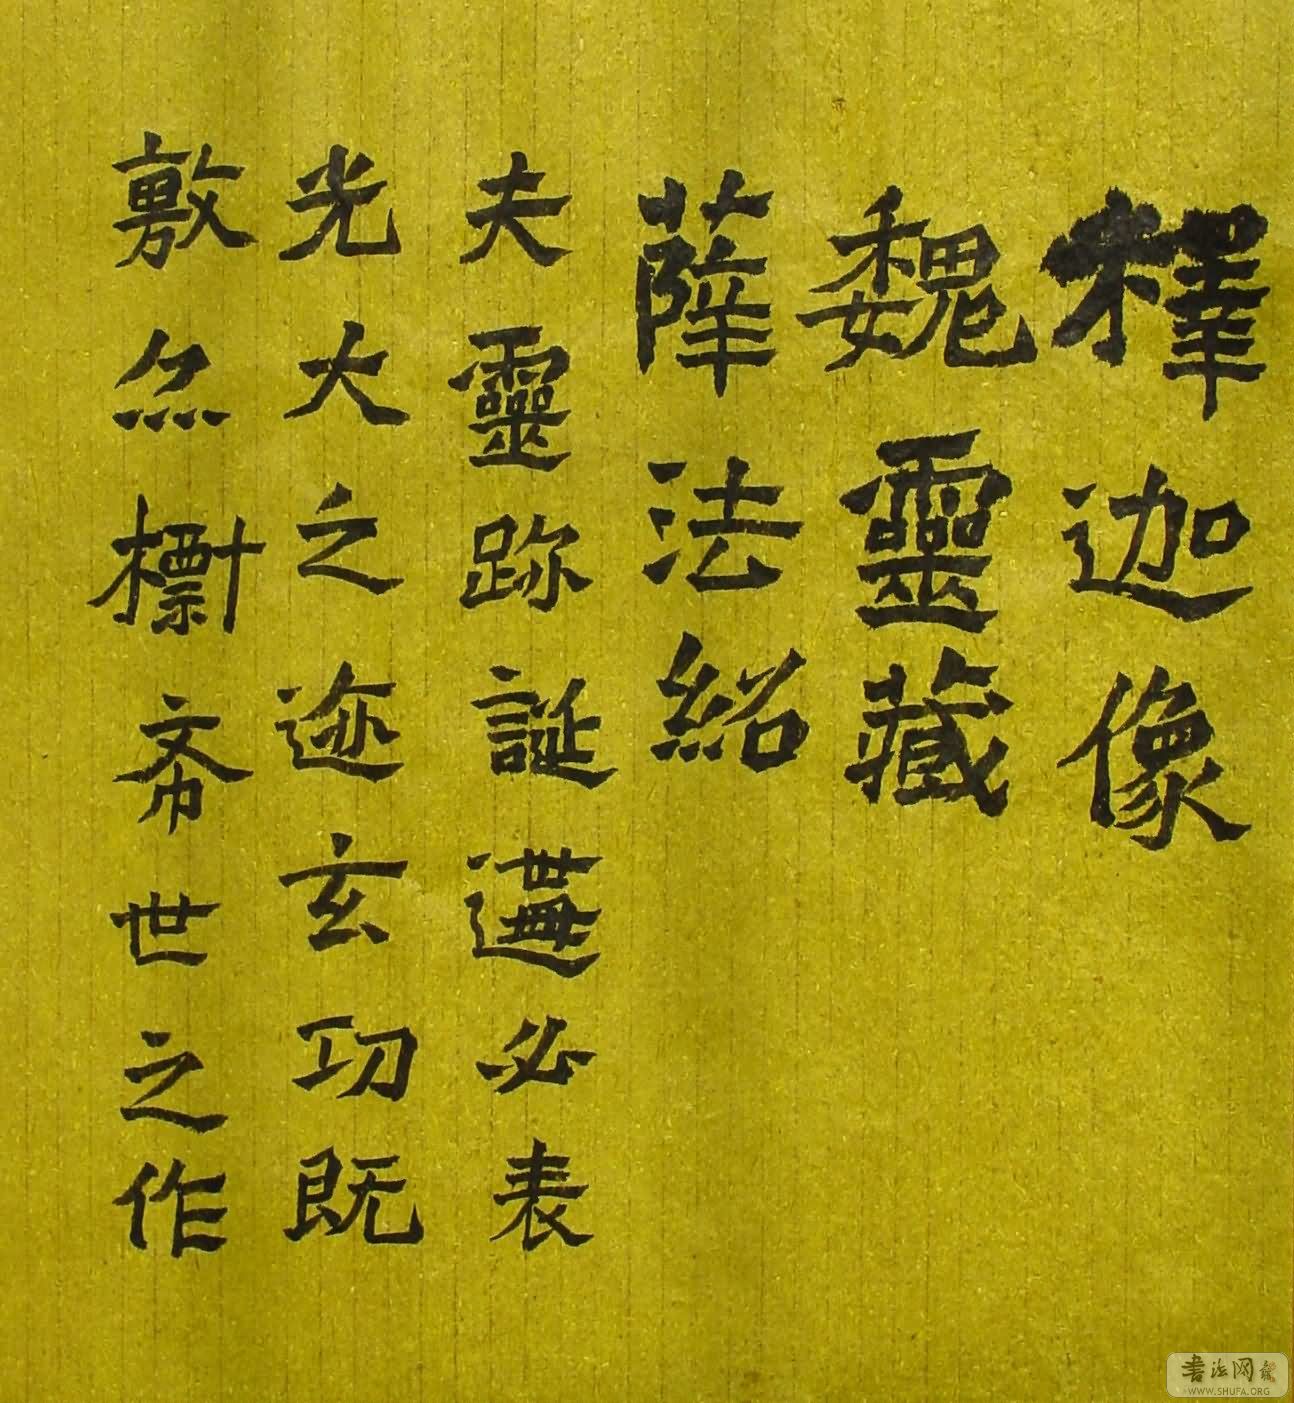 釋迦像
魏靈藏
薛法紹
夫靈跡誕遘必表
光大之迹玄功既
敷亦標希世之作
書法网
WWW.SHUFA.ORG